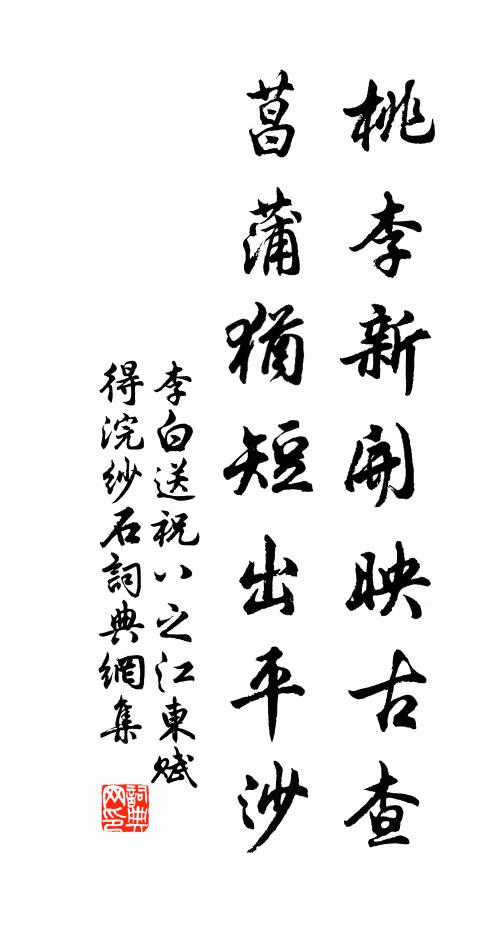 桃李新開映古查
菖蒲猶短出平沙
李白送祝八之江東賦
得浣紗石詞典網集
詞典
网印